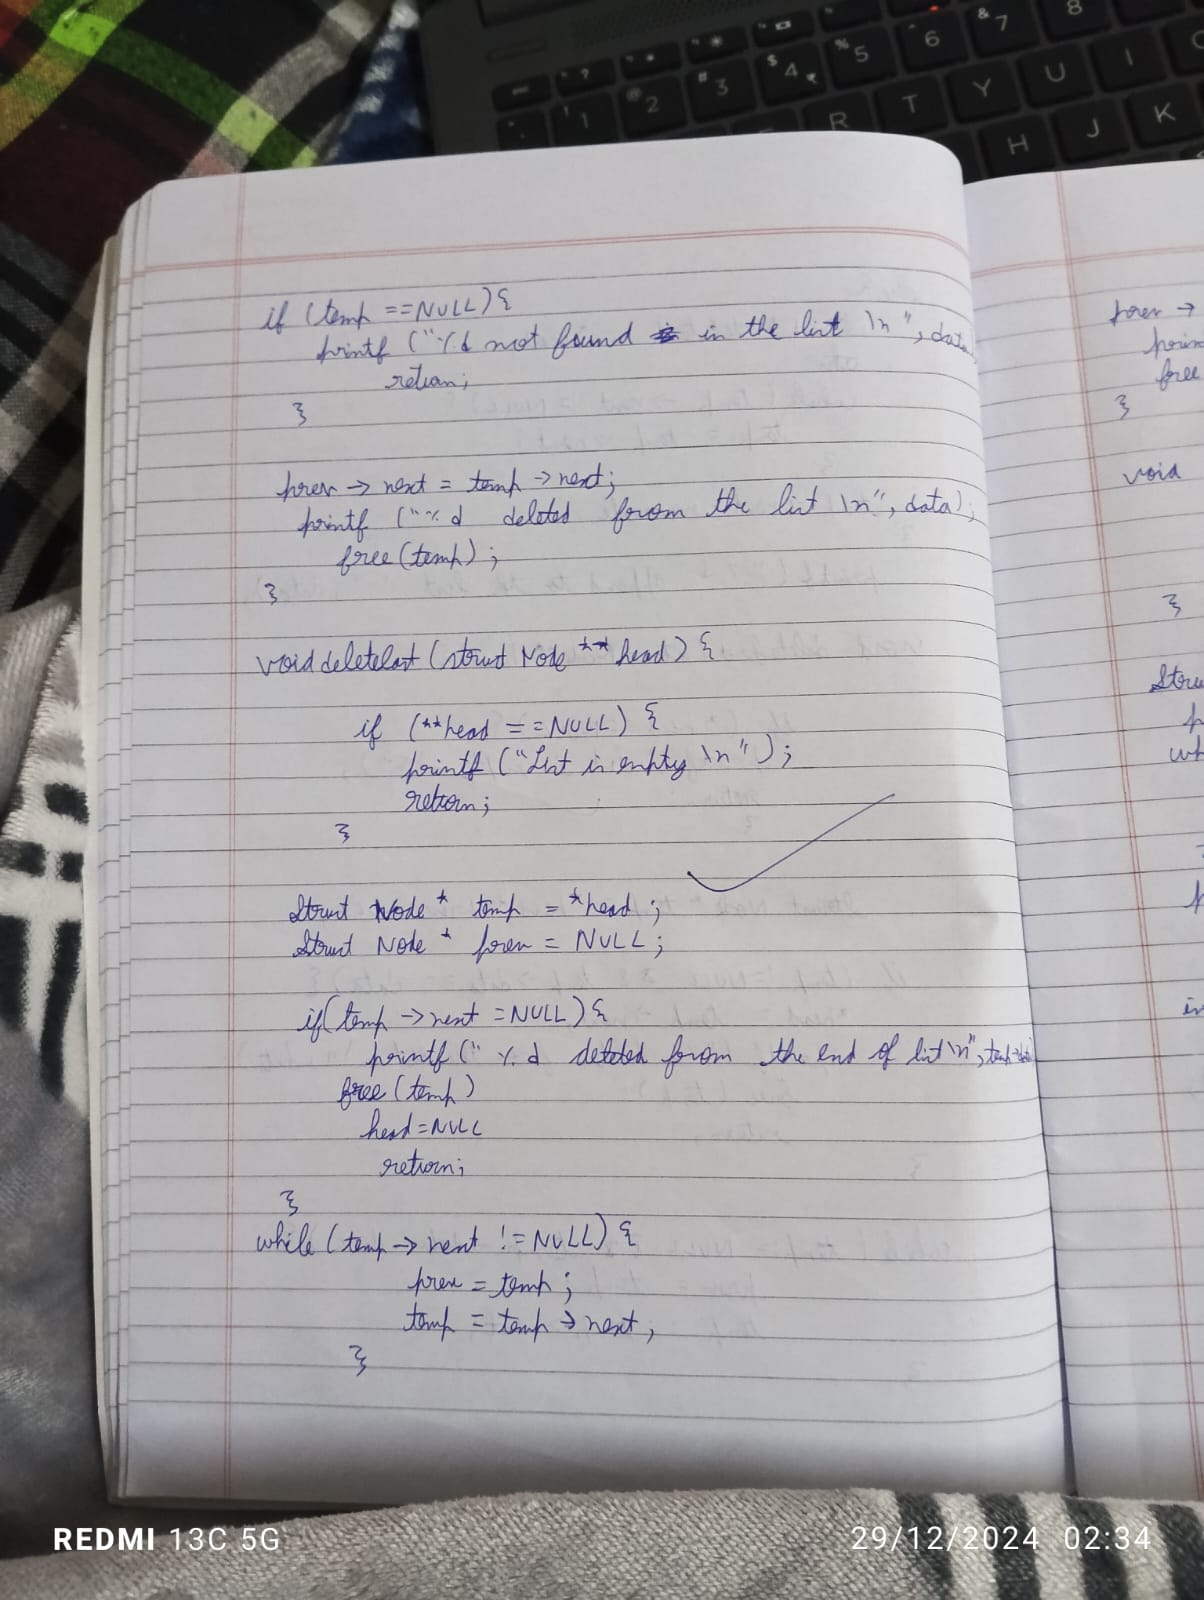 if (temp ==NULL) {
printf ("%d not found in the list \n", data
return;
}
prev -> next = temp -> next;
printf ("%d deleted from the list \n", data);
free (temp);
}
void deletelast (struct Node ** head) {
if (**head == NULL) {
printf ("List is empty \n");
return;
}
Struct Node * temp = *head;
Struct Node * prev = NULL;
if (temp -> next = NULL) {
printf (" %d deleted from the end of list \n", temp->data
free (temp)
head = NULL
return;
}
while (temp -> next != NULL) {
prev = temp;
temp = temp -> next,
}
prev ->
prin
free
}
void
}
Stru
p
wh
in
REDMI 13C 5G
29/12/2024 02:34